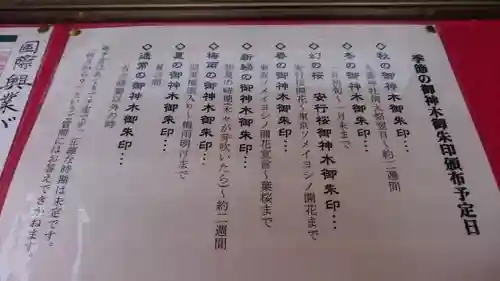 季節の御神木御朱印頒布予定日
◇秋の御神木御朱印…
◇冬の御神木御朱印…
二月初旬〜二月末まで
◇幻の桜 安行桜御神木御朱印…
安行桜開花〜東京ソメイヨシノ開花まで
◇春の御神木御朱印…
東京ソメイヨシノ開花宣言〜葉桜まで
◇新緑の御神木御朱印…
新芽の時期(木々が芽吹いたら)〜約二週間
◇梅雨の御神木御朱印…
関東梅雨入り〜梅雨明けまで
◇夏の御神木御朱印…
夏の間
◇通常の御神木御朱印…
右の時期以外の時
正確な時期は未定です。
質問にはお答えできかねます。
国際興業バ